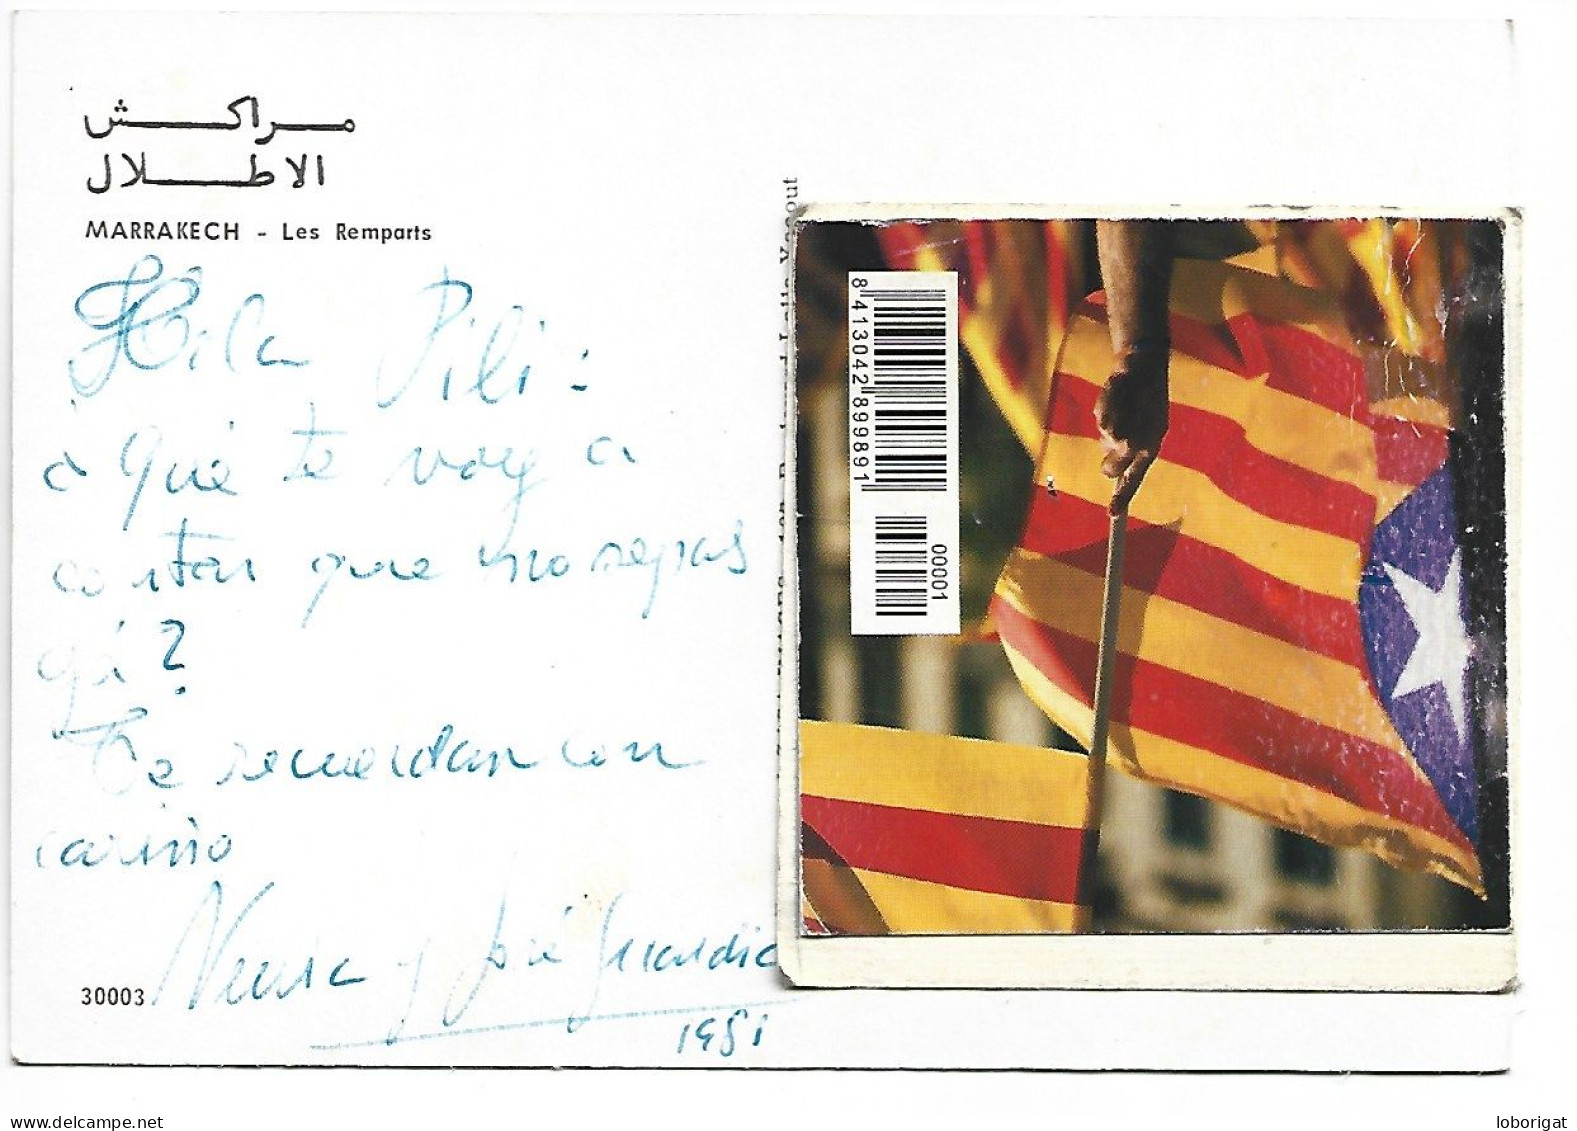 مراكش
الاطلال
MARRAKECH - Les Remparts
Hola Pili:
¿ Qué te voy a
contar que no sepas
ya?
Te recuerdan con
cariño
Neusa y José Guardia
1981
30003
out
8 413042 899891
00001
loborigat